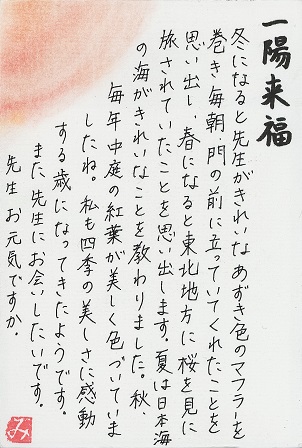 一陽来福
冬になると先生がきれいなあずき色のマフラーを
巻き毎朝門の前に立っていてくれたことを
思い出し、春になると東北地方に桜を見に
旅されていたことを思い出します。夏は日本海
の海がきれいなことを教わりました。秋、
毎年中庭の紅葉が美しく色づいていま
したね。私も四季の美しさに感動
する歳になってきたようです。
また、先生にお会いしたいです。
先生お元気ですか。
み